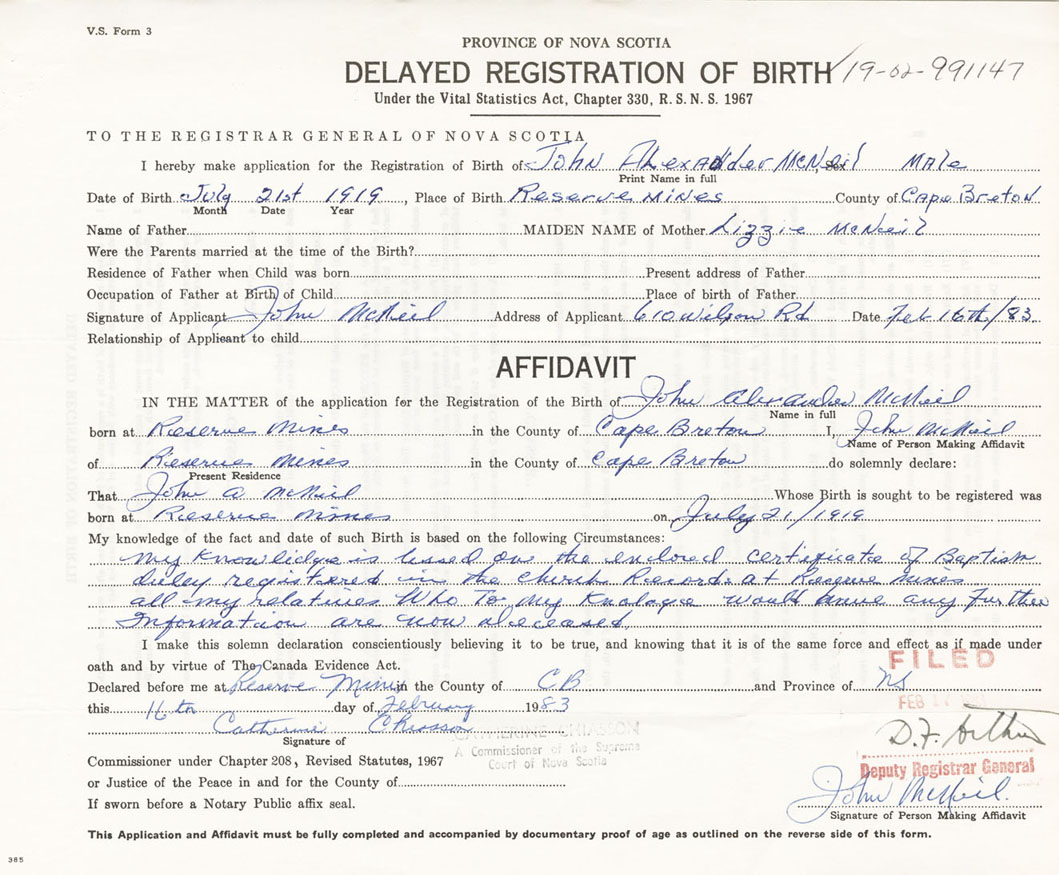 V.S. Form 3
PROVINCE OF NOVA SCOTIA
DELAYED REGISTRATION OF BIRTH 19-02-991147
Under the Vital Statistics Act, Chapter 330, R.S.N.S. 1967
TO THE REGISTRAR GENERAL OF NOVA SCOTIA
I hereby make application for the Registration of Birth of John Alexander McNeil, Sex Male
Print Name in full
Date of Birth July 21st 1919, Place of Birth Reserve Mines County of Cape Breton
Month Date Year
Name of Father MAIDEN NAME of Mother Lizzie McNeil
Were the Parents married at the time of the Birth?
Residence of Father when Child was born Present address of Father
Occupation of Father at Birth of Child Place of birth of Father
Signature of Applicant John McNeil Address of Applicant 610 Wilson Rd Date Feb 16th/83
Relationship of Applicant to child
AFFIDAVIT
IN THE MATTER of the application for the Registration of the Birth of John Alexander McNeil
Name in full
born at Reserve Mines in the County of Cape Breton I, John McNeil
Name of Person Making Affidavit
of Reserve Mines in the County of Cape Breton do solemnly declare:
Present Residence
That John A McNeil Whose Birth is sought to be registered was
born at Reserve Mines on July 21/1919
My knowledge of the fact and date of such Birth is based on the following Circumstances:
My Knowlidge is bused on the enclored certificate of Baptism
duley registered in the Church Records at Reserve Mines
all my relatives Who To My Knolage would have any Further
Information are now deceased
I make this solemn declaration conscientiously believing it to be true, and knowing that it is of the same force and effect as if made under
oath and by virtue of The Canada Evidence Act.
FILED
Declared before me at Reserve Mines in the County of CB and Province of NS
this 16th day of February 1983
FEB
Catherine Chiasson
CATHERINE CHIASSON
Signature of
A Commissioner of the Supreme
Court of Nova Scotia
D.F. Arthur
Commissioner under Chapter 208, Revised Statutes, 1967
Deputy Registrar General
or Justice of the Peace in and for the County of
John McNeil.
If sworn before a Notary Public affix seal.
Signature of Person Making Affidavit
This Application and Affidavit must be fully completed and accompanied by documentary proof of age as outlined on the reverse side of this form.
385